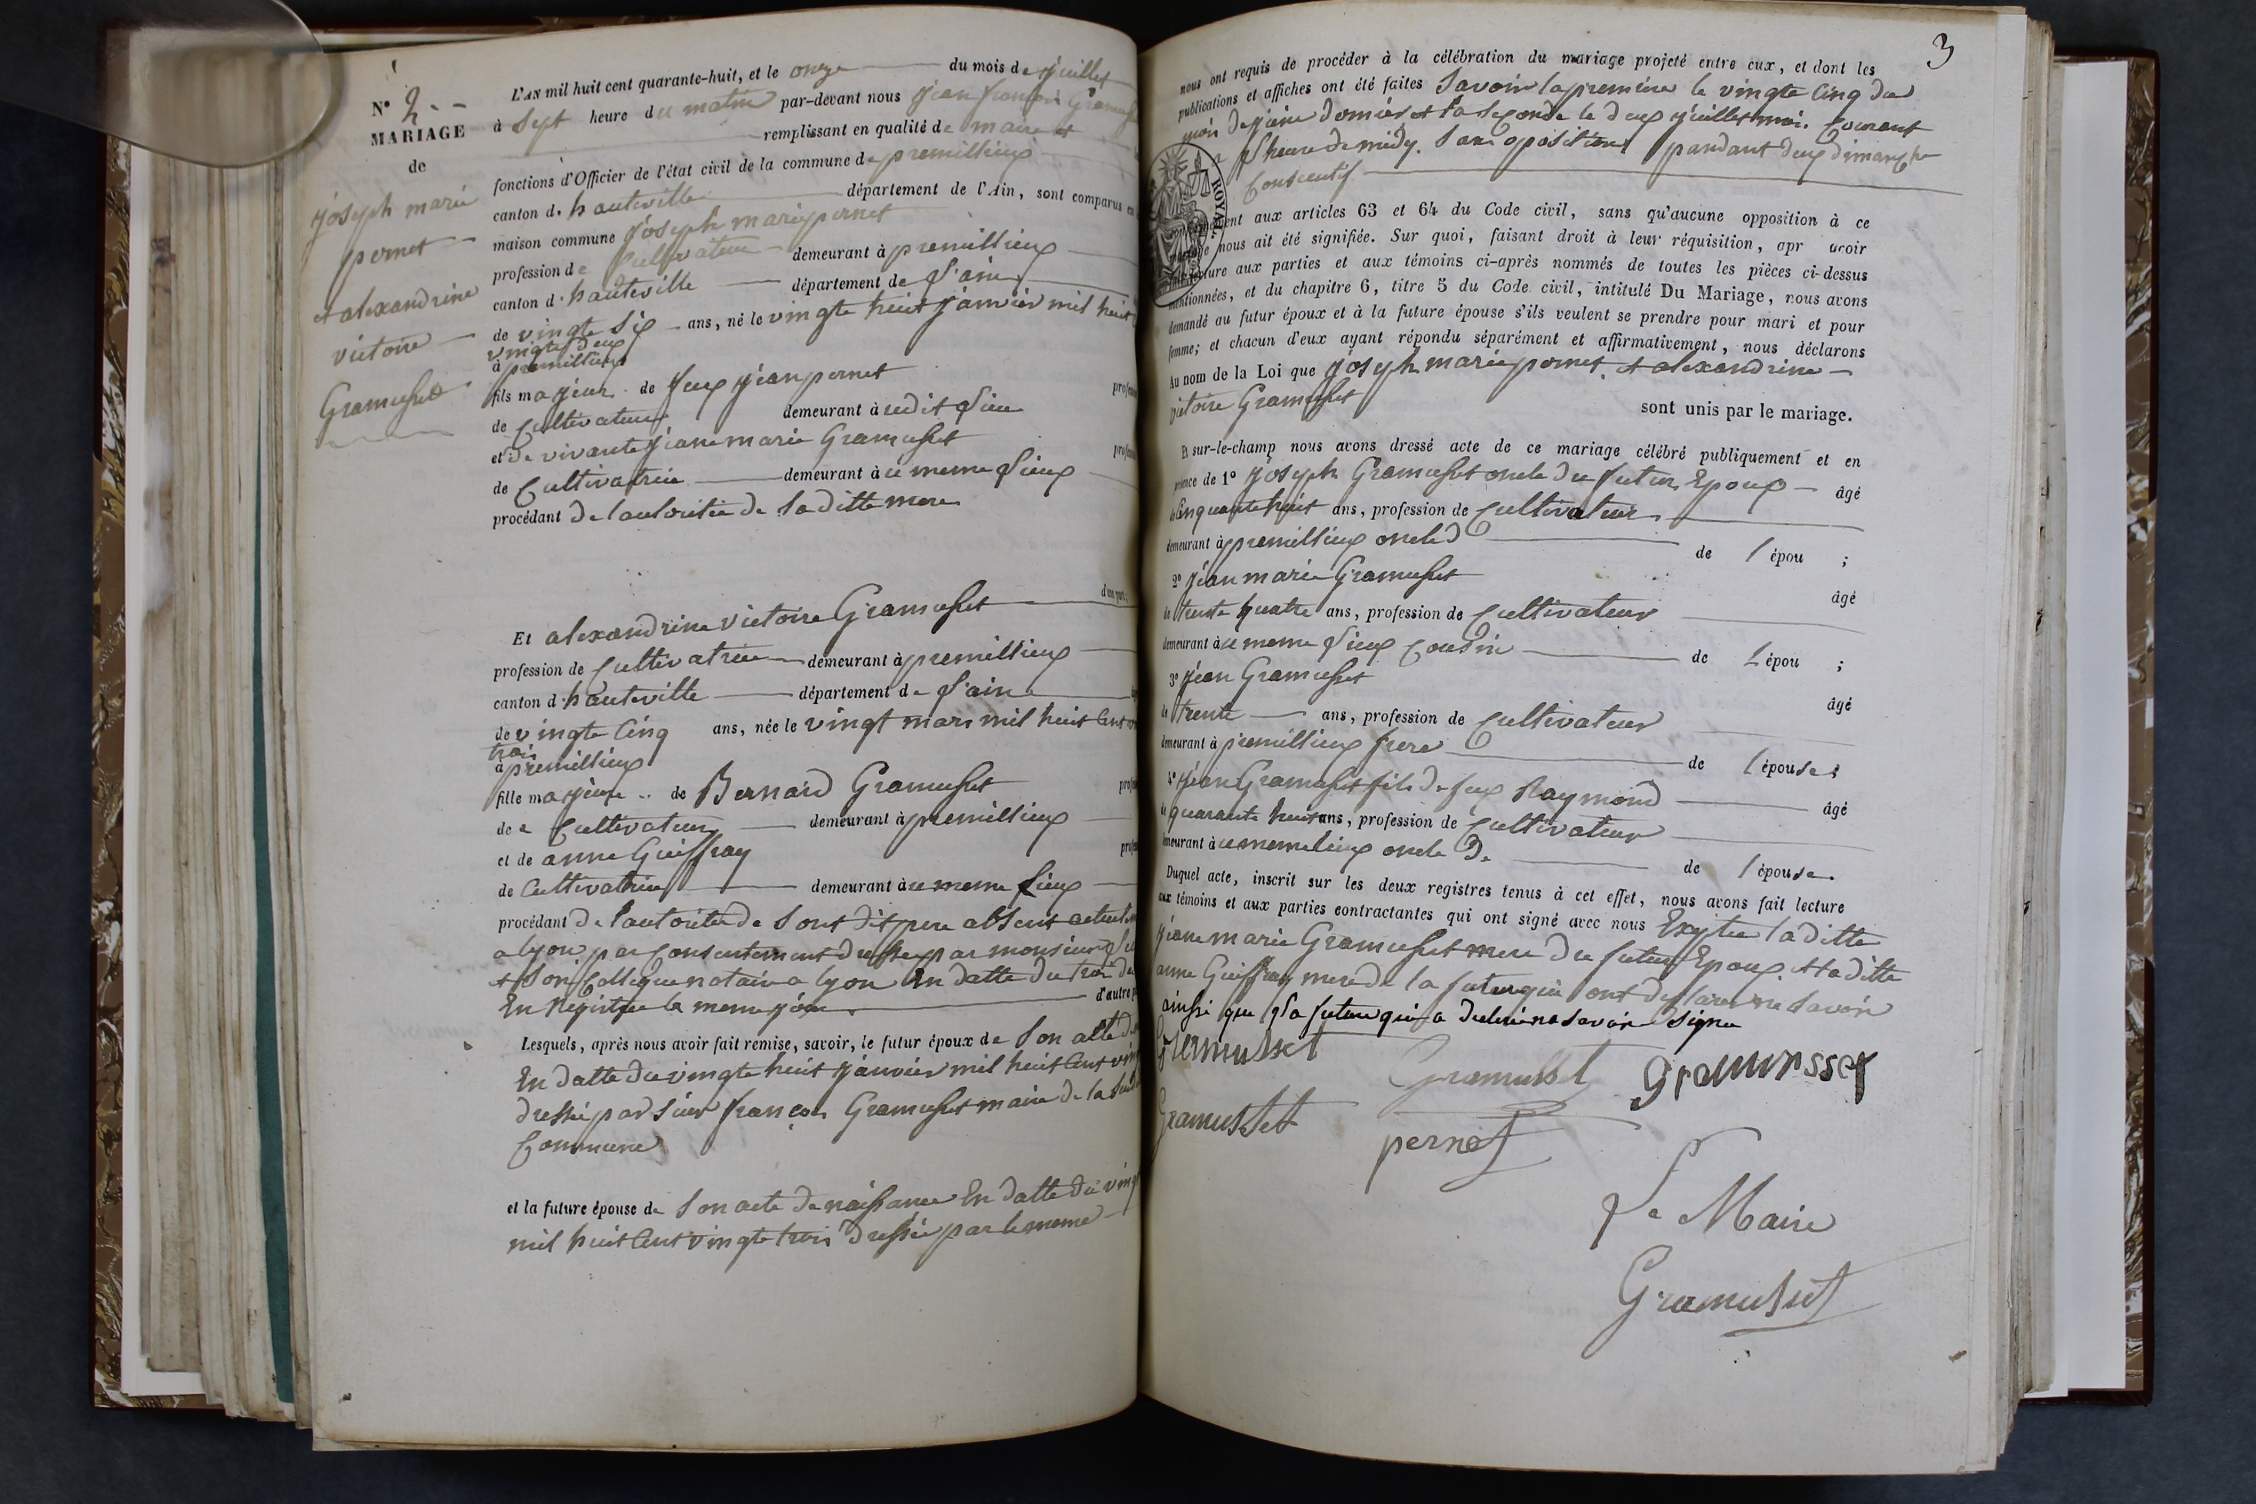 N° 2
MARIAGE
de
joseph marie
pernet
et alexandrine
victoire
Gramusset
L'AN mil huit cent quarante-huit, et le onze du mois de juillet
à sept heure du matin par-devant nous jean francois
remplissant en qualité de maire et
fonctions d'Officier de l'état civil de la commune de premillieux
canton d. hauteville département de l'Ain, sont comparus en
maison commune joseph marie pernet
profession de Cultivateur demeurant à premillieux
canton d. hauteville département de l'ain
de vingte six ans, né le vingte huit janvier mil huit
vingte deux
à premillieux
fils majeur de feux jean pernet
de Cultivateur demeurant à sudit lieu
et de vivante jeane marie Gramusset
de Cultivatrice demeurant à ce meme lieux
procédant de l'autoritée de sa ditte mere
d'une part,
Et alexandrine victoire Gramusset
profession de Cultivatrice demeurant à premillieux
canton d. hauteville département de l'ain
de vingte Cinq ans, née le vingt mars mil huit Cent
trois
à premillieux
fille majeure de Bernard Gramusset
de Cultivateur demeurant à premillieux
et de anne Guiffray
de Cultivatrice demeurant à ce meme lieux
procédant de l'autoritée de sont dit pere absent
a lyon par Consentement dressé par monsieur
et son Collegue notaire a lyon En datte du trois du
En Registre le meme jour d'autre
Lesquels, après nous avoir fait remise, savoir, le futur époux de Son acte de
En datte du vingte huit janvier mil huit Cent
dressée par sieur françois Gramusset maire de la
Commune
et la future épouse de Son acte de naissance En datte du
mil huit Cent vingte trois dressée par le meme
3
nous ont requis de procéder à la célébration du mariage projeté entre eux, et dont les
publications et affiches ont été faites Savoir la premiere le vingte Cinq du
mois de juine dernier et la seconde le deux juillet moi. Courant
heure de midy. Sans oposition pandant deux dimanche
Consecutif
ROYAL
aux articles 63 et 64 du Code civil, sans qu'aucune opposition à ce
nous ait été signifiée. Sur quoi, faisant droit à leur réquisition, apr avoir
lecture aux parties et aux témoins ci-après nommés de toutes les pièces ci-dessus
mentionnées, et du chapitre 6, titre 5 du Code civil, intitulé Du Mariage, nous avons
demandé au futur époux et à la future épouse s'ils veulent se prendre pour mari et pour
femme; et chacun d'eux ayant répondu séparément et affirmativement, nous déclarons
Au nom de la Loi que joseph marie pernet et alexandrine
victoire Gramusset
sont unis par le mariage.
Et sur-le-champ nous avons dressé acte de ce mariage célébré publiquement et en
de 1° joseph Gramusset oncle du futur Epoux âgé
Cinquante huit ans, profession de Cultivateur
demeurant à premillieux oncle d de l épou ;
2° jean marie Gramusset âgé
de trente quatre ans, profession de Cultivateur
demeurant à ce meme lieux Cousin de L épou ;
3° jean Gramusset âgé
de trente ans, profession de Cultivateur
demeurant à premillieux frere de l épouse ;
4° jean Gramusset fils de feux Raymond âgé
de quarante huit ans, profession de Cultivateur
demeurant à ce meme lieux oncle de de l épouse.
Duquel acte, inscrit sur les deux registres tenus à cet effet, nous avons fait lecture
aux témoins et aux parties contractantes qui ont signé avec nous la ditte
jeane marie Gramusset mere du futur Epoux. et la ditte
anne Guiffray mere de la future qui ont declaree ne savoir
ainsi que la future qui a declarée ne savoir signer
Gramusset
Gramusset
Gramusset
Gramusset
pernet
Le Maire
Gramusset